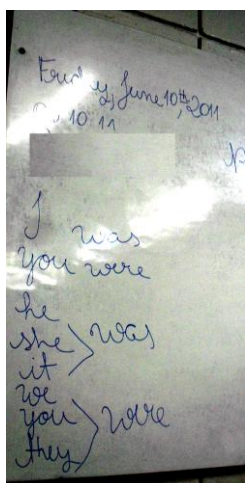 Friday, June 10th, 2011
10 11
I was
you were
he
she was
it
we
you were
they